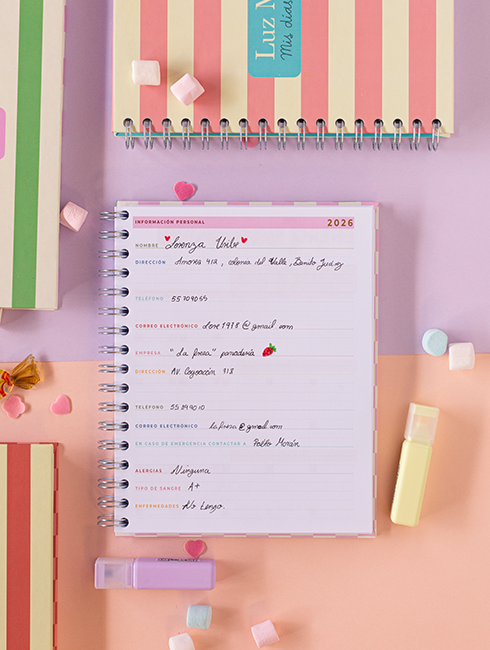 Luz M
Mis días
INFORMACIÓN PERSONAL 2026
NOMBRE Lorenza Uribe
DIRECCIÓN Amores 412, colonia del Valle, Benito Juárez
TELÉFONO 55709055
CORREO ELECTRÓNICO Lore1978@gmail.com
EMPRESA "La fresa" panadería
DIRECCIÓN AV. Coyoacán 918
TELÉFONO 55899010
CORREO ELECTRÓNICO lafresa@gmail.com
EN CASO DE EMERGENCIA CONTACTAR A Pablo Morán
ALERGIAS Ninguna
TIPO DE SANGRE A+
ENFERMEDADES No tengo.